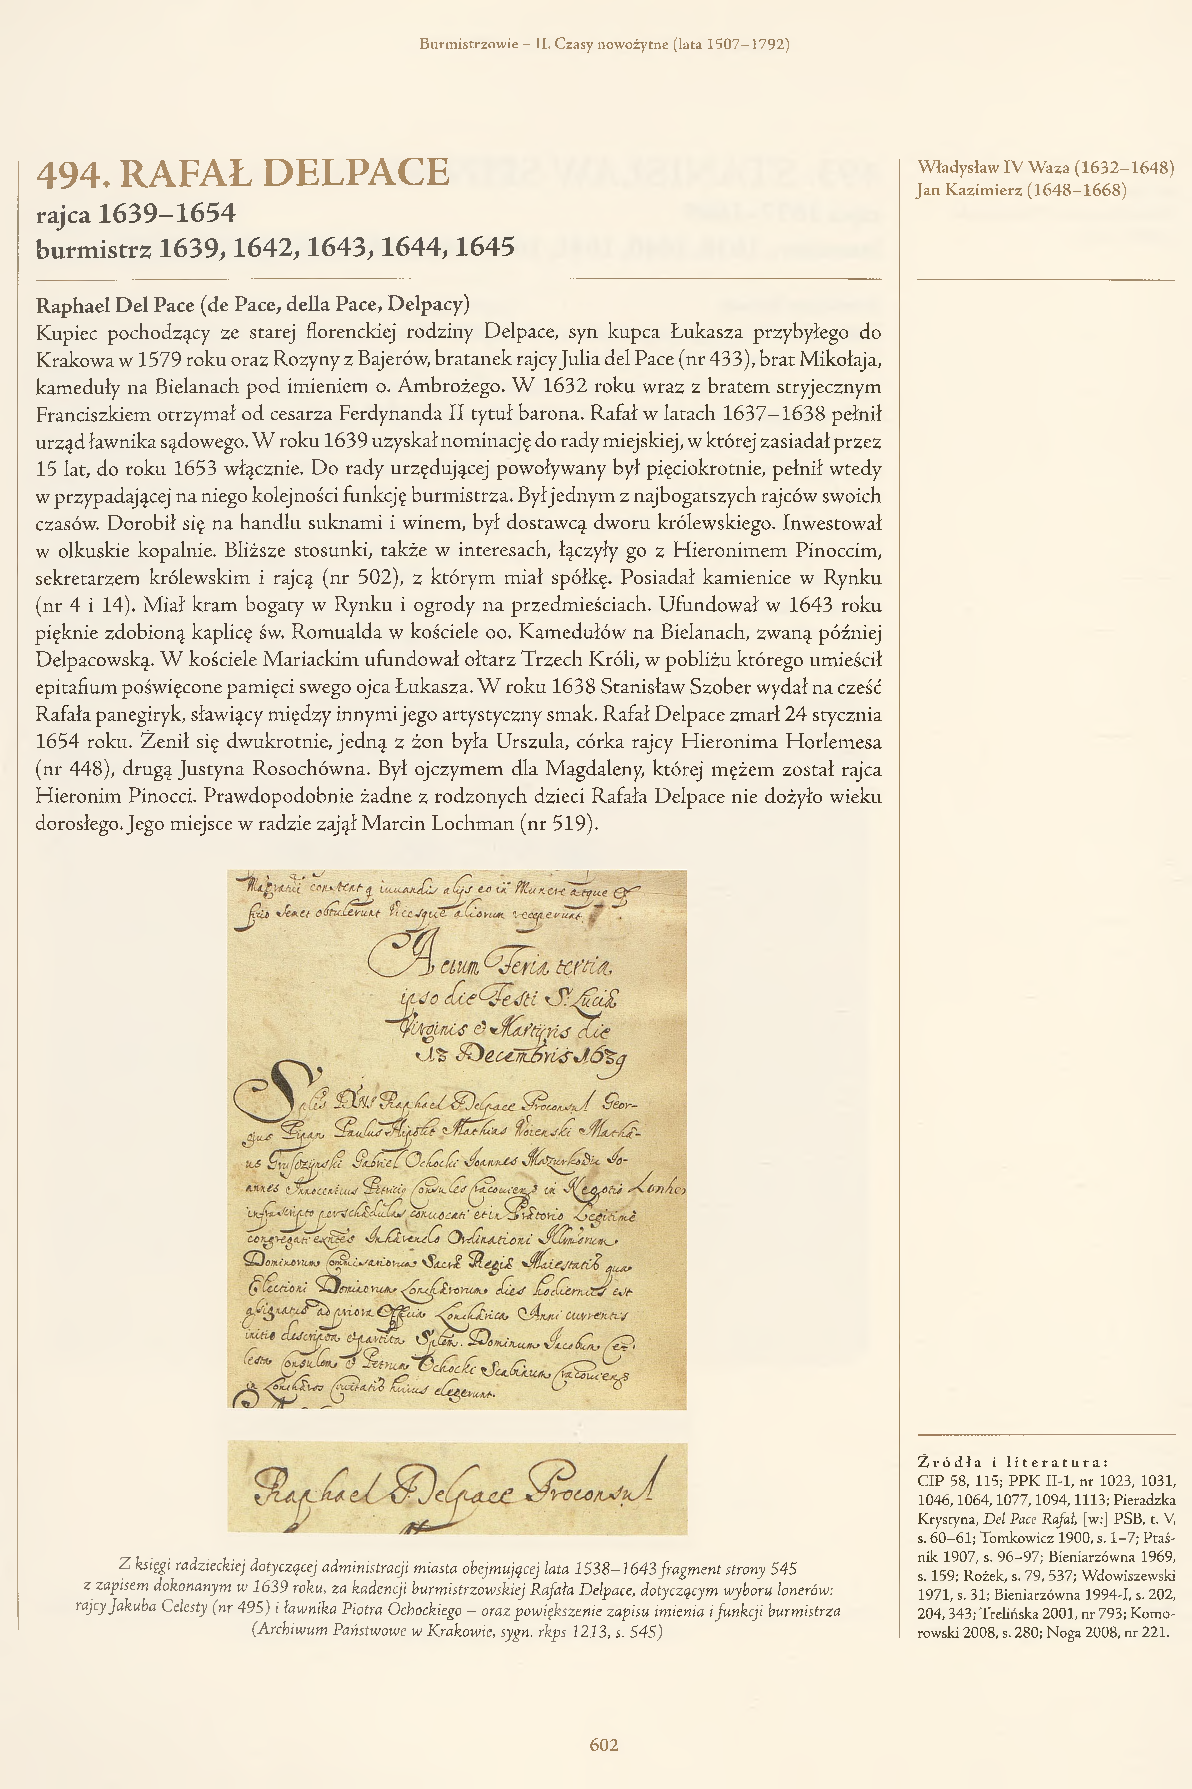 Burmistrzowie – II. Czasy nowożytne (lata 1507–1792)
494. RAFAŁ DELPACE
rajca 1639–1654
burmistrz 1639, 1642, 1643, 1644, 1645
Władysław IV Waza (1632–1648)
Jan Kazimierz (1648–1668)
Raphael Del Pace (de Pace, della Pace, Delpacy)
Kupiec pochodzący ze starej florenckiej rodziny Delpace, syn kupca Łukasza przybyłego do
Krakowa w 1579 roku oraz Rozyny z Bajerów, bratanek rajcy Julia del Pace (nr 433), brat Mikołaja,
kameduły na Bielanach pod imieniem o. Ambrożego. W 1632 roku wraz z bratem stryjecznym
Franciszkiem otrzymał od cesarza Ferdynanda II tytuł barona. Rafał w latach 1637–1638 pełnił
urząd ławnika sądowego. W roku 1639 uzyskał nominację do rady miejskiej, w której zasiadał przez
15 lat, do roku 1653 włącznie. Do rady urzędującej powoływany był pięciokrotnie, pełnił wtedy
w przypadającej na niego kolejności funkcję burmistrza. Był jednym z najbogatszych rajców swoich
czasów. Dorobił się na handlu suknami i winem, był dostawcą dworu królewskiego. Inwestował
w olkuskie kopalnie. Bliższe stosunki, także w interesach, łączyły go z Hieronimem Pinoccim,
sekretarzem królewskim i rajcą (nr 502), z którym miał spółkę. Posiadał kamienice w Rynku
(nr 4 i 14). Miał kram bogaty w Rynku i ogrody na przedmieściach. Ufundował w 1643 roku
pięknie zdobioną kaplicę św. Romualda w kościele oo. Kamedułów na Bielanach, zwaną później
Delpacowską. W kościele Mariackim ufundował ołtarz Trzech Króli, w pobliżu którego umieścił
epitafium poświęcone pamięci swego ojca Łukasza. W roku 1638 Stanisław Szober wydał na cześć
Rafała panegiryk, sławiący między innymi jego artystyczny smak. Rafał Delpace zmarł 24 stycznia
1654 roku. Żenił się dwukrotnie, jedną z żon była Urszula, córka rajcy Hieronima Horlemesa
(nr 448), drugą Justyna Rosochówna. Był ojczymem dla Magdaleny, której mężem został rajca
Hieronim Pinocci. Prawdopodobnie żadne z rodzonych dzieci Rafała Delpace nie dożyło wieku
dorosłego. Jego miejsce w radzie zajął Marcin Lochman (nr 519).
Actum Feria tertia
ipso die Festi S. Luciæ
Virginis et Martyris die
13 Decembris 1639
Raphael Delpace Proconsul Geor-
Paulus Mathias
Gabriel Ochocki Joannes Jo-
annes Innocentius Petricio Consules in Negotio
infrascripto convocati et in Prætorio Legitime
Ordinationi
Dominorum Sacræ Regiæ
Electioni Dominorum dies hodiernus est
Anni currentis
initio Dominum Jacobum
Petrum Ochocki Scabinum
huius elegerunt.
Raphael Delpace Proconsul
Z księgi radzieckiej dotyczącej administracji miasta obejmującej lata 1538–1643 fragment strony 545
z zapisem dokonanym w 1639 roku, za kadencji burmistrzowskiej Rafała Delpace, dotyczącym wyboru lonerów:
rajcy Jakuba Celesty (nr 495) i ławnika Piotra Ochockiego – oraz powiększenie zapisu imienia i funkcji burmistrza
(Archiwum Państwowe w Krakowie, sygn. rkps 1213, s. 545)
Źródła i literatura:
CIP 58, 115; PPK II-1, nr 1023, 1031,
1046, 1064, 1077, 1094, 1113; Pieradzka
Krystyna, Del Pace Rafał, [w:] PSB, t. V,
s. 60–61; Tomkowicz 1900, s. 1–7; Ptaś-
nik 1907, s. 96–97; Bieniarzówna 1969,
s. 159; Rożek, s. 79, 537; Wdowiszewski
1971, s. 31; Bieniarzówna 1994-I, s. 202,
204, 343; Trelińska 2001, nr 793; Komo-
rowski 2008, s. 280; Noga 2008, nr 221.
602